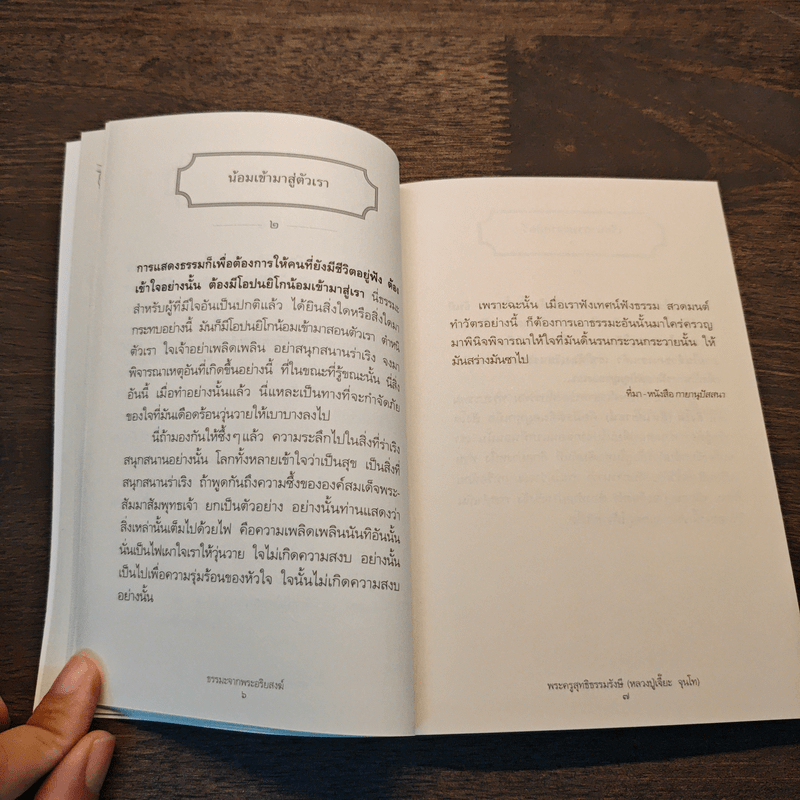 น้อมเข้ามาสู่ตัวเรา
๒
การแสดงธรรมก็เพื่อต้องการให้คนที่ยังมีชีวิตอยู่ฟัง ต้อง
เข้าใจอย่างนั้น ต้องมีโอปนยิโกน้อมเข้ามาสู่เรา นี่ธรรมะ
สำหรับผู้ที่มีใจอันเป็นปกติแล้ว ได้ยินสิ่งใดหรือสิ่งใดมา
กระทบอย่างนี้ มันก็มีโอปนยิโกน้อมเข้ามาสอนตัวเรา ตำหนิ
ตัวเรา ใจเจ้าอย่าเพลิดเพลิน อย่าสนุกสนานร่าเริง จงมา
พิจารณาเหตุอันที่เกิดขึ้นอย่างนี้ ที่ในขณะที่รู้ขณะนั้น นี่สิ่ง
อันนี้ เมื่อทำอย่างนั้นแล้ว นี่แหละเป็นทางที่จะกำจัดภัย
ของใจที่มันเดือดร้อนวุ่นวายให้เบาบางลงไป
นี่ถ้ามองกันให้ซึ้งๆ แล้ว ความระลึกไปในสิ่งที่ร่าเริง
สนุกสนานอย่างนั้น โลกทั้งหลายเข้าใจว่าเป็นสุข เป็นสิ่งที่
สนุกสนานร่าเริง ถ้าพูดกันถึงความซึ้งขององค์สมเด็จพระ-
สัมมาสัมพุทธเจ้า ยกเป็นตัวอย่าง อย่างนั้นท่านแสดงว่า
สิ่งเหล่านั้นเต็มไปด้วยไฟ คือความเพลิดเพลินนันทิอันนั้น
นั่นเป็นไฟเผาใจเราให้วุ่นวาย ใจไม่เกิดความสงบ อย่างนั้น
เป็นไปเพื่อความรุ่มร้อนของหัวใจ ใจนั้นไม่เกิดความสงบ
อย่างนั้น
ธรรมะจากพระอริยสงฆ์
๖
เพราะฉะนั้น เมื่อเราฟังเทศน์ฟังธรรม สวดมนต์
ทำวัตรอย่างนี้ ก็ต้องการเอาธรรมะอันนั้นมาใคร่ครวญ
มาพินิจพิจารณาให้ใจที่มันดิ้นรนกระวนกระวายนั้น ให้
มันสร่างมันซาไป
ที่มา - หนังสือ กายานุปัสสนา
พระครูสุทธิธรรมรังษี (หลวงปู่เจี๊ยะ จุนโท)
๗